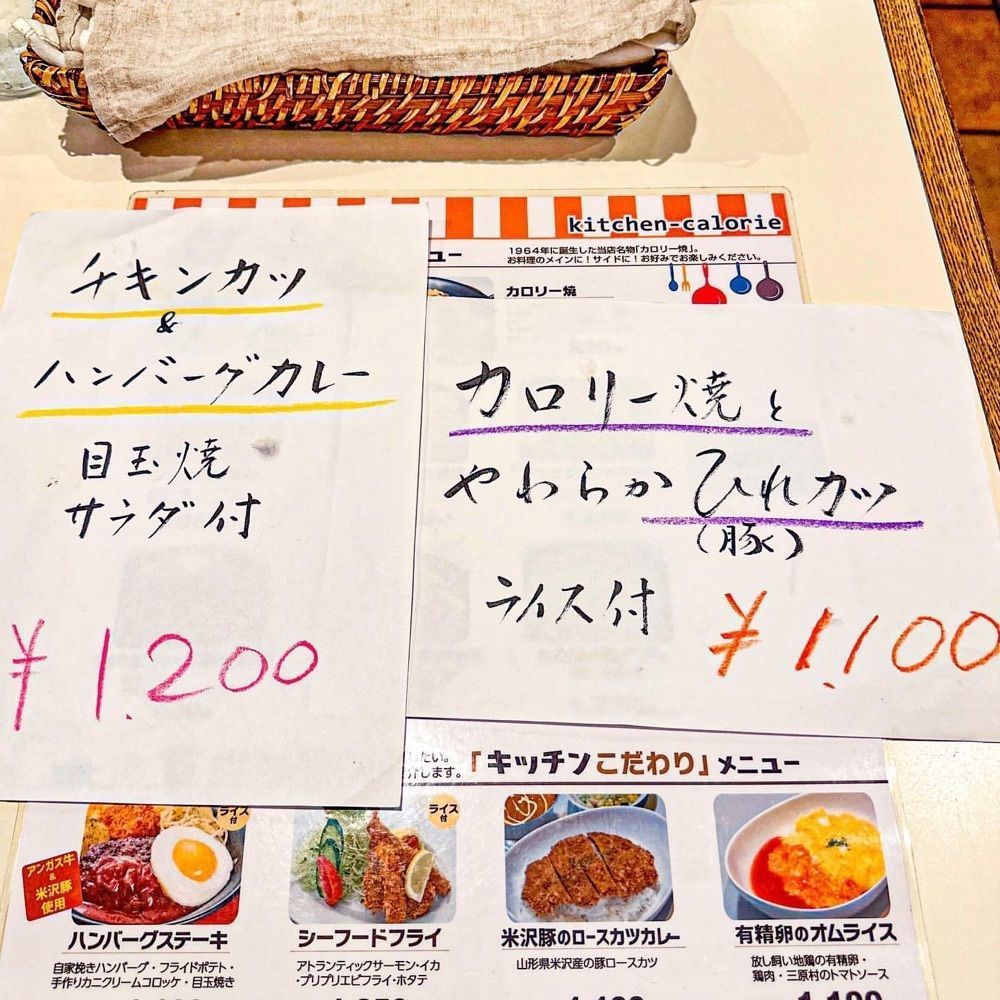 kitchen-calorie
ュー
1964年に誕生した当店名物「カロリー焼」。
お料理のメインに!サイドに!お好みでお楽しみください。
カロリー焼
チキンカツ
&
ハンバーグカレー
目玉焼
サラダ付
¥1,200
カロリー焼と
やわらかひれカツ
(豚)
ライス付
¥1,100
したい。
介します。
「キッチンこだわり」メニュー
ライス付
アンガス牛
&
米沢豚
使用
ハンバーグステーキ
自家挽きハンバーグ・フライドポテト・
手作りカニクリームコロッケ・目玉焼き
ライス付
シーフードフライ
アトランティックサーモン・イカ
・プリプリエビフライ・ホタテ
米沢豚のロースカツカレー
山形県米沢産の豚ロースカツ
有精卵のオムライス
放し飼い地鶏の有精卵・
鶏肉・三原村のトマトソース